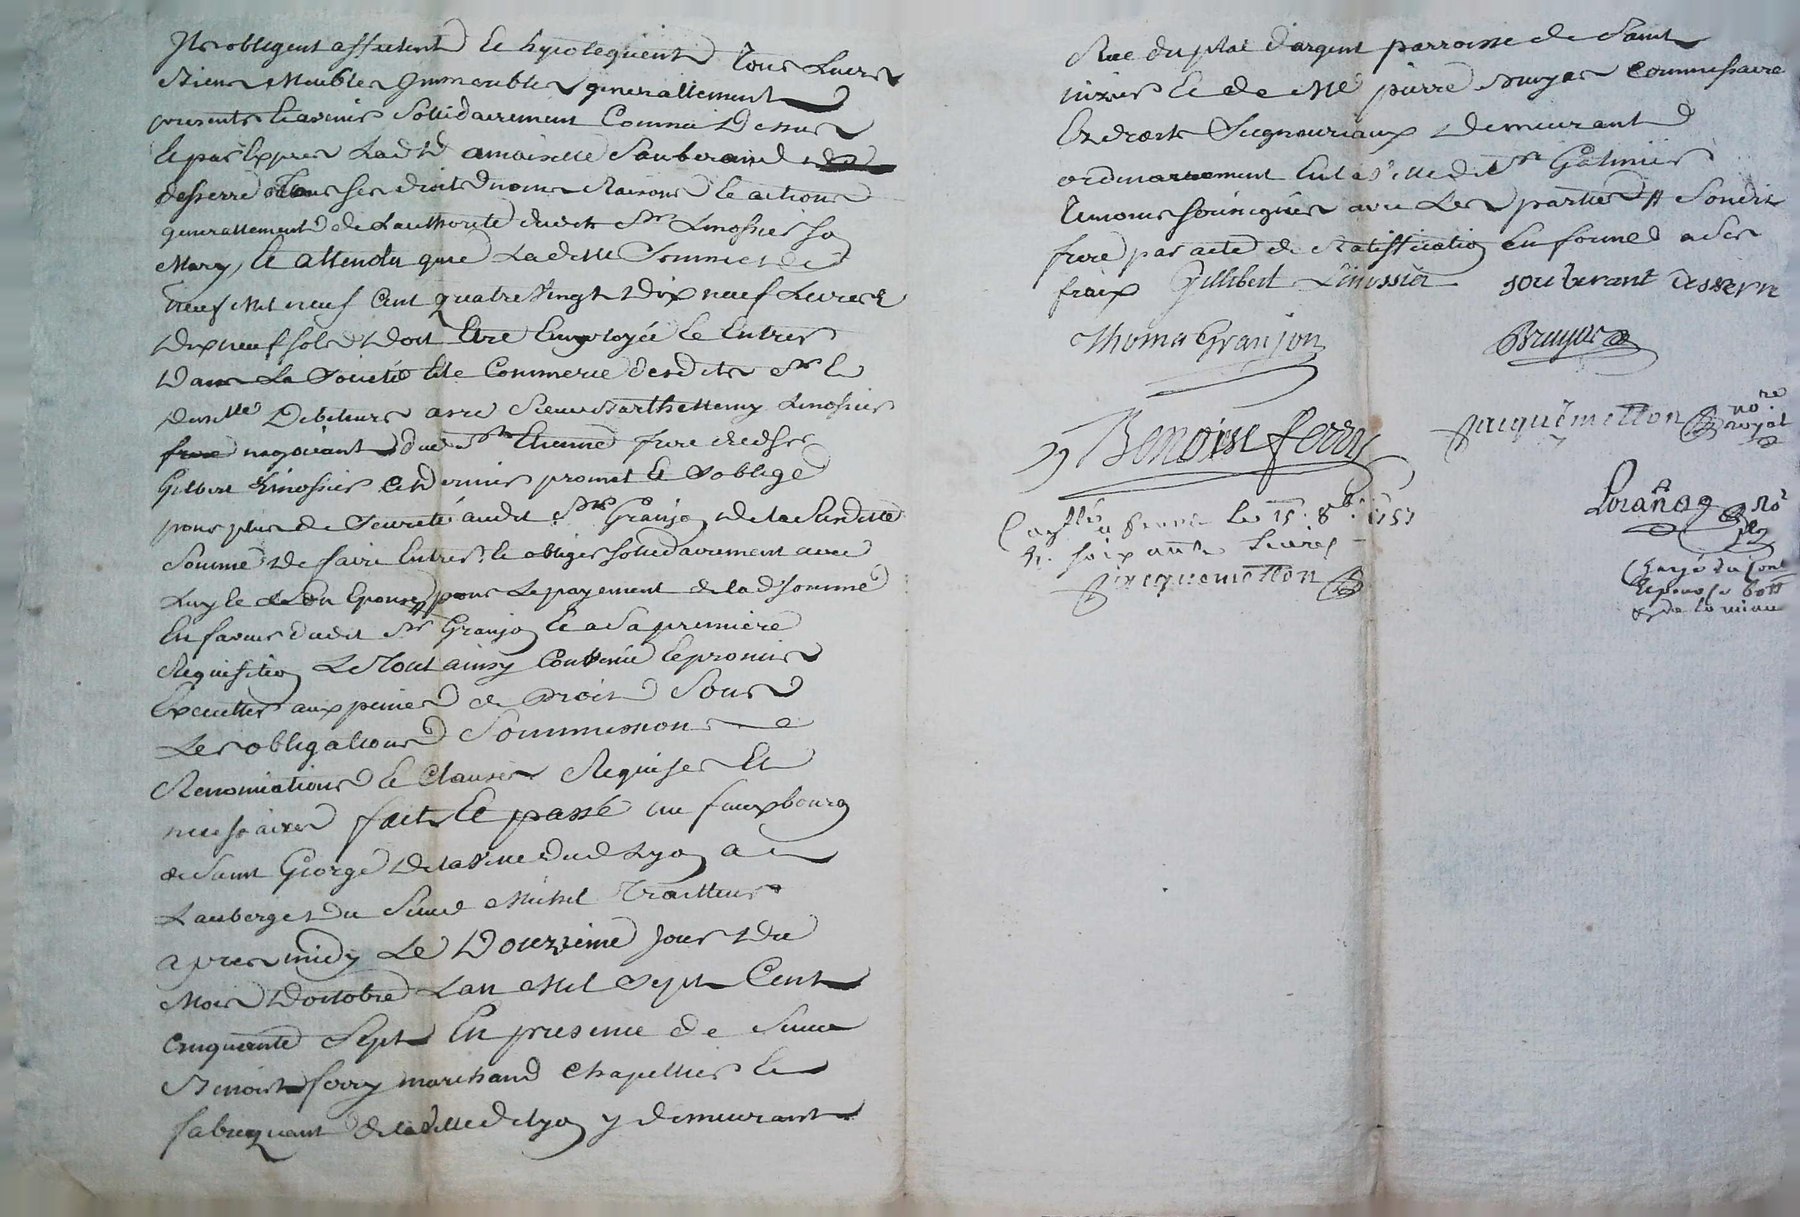 Ils obligent affectent et hypotequent tous Leurs
Biens Meubles Immeubles generallement
presents et avenir Solidairement Comme Dessus
et par Exprès Ladte damoiselle Souberand
desserre tous ses droits noms Raisons et actions
generallement de L'authorité dudit Sr Linossier so
Mary, et attendu que Laditte Somme de
neuf Mil neuf Cent quatre Vingt Dix neuf Livres
Dix neuf sols Doit Etre Employée et Entrer
Dans La Société et Commerce desdits Sr et
Dlle Debiteurs avec Sieur Barthellemy Linossier
negotiant dud St Etienne frere dudsr
Gilbert Linossier Ce Dernier promet et s'oblige
pour plus de Seureté audit Sr Granjo De la Susditte
Somme De faire Entrer et obliger solidairement avec
Luy Son Epouse pour Le payement de lad Somme
En faveur dudit Sr Granjo et a sa premiere
Requisitio Le Tout ainsy Convenu et promis
Executter aux peines de Droit Sous
Les obligations Soummissions
Renonciations et Clauses Requises Et
necessaires fait Et passé au fauxbourg
de Saint George De la Ville De Lyo a
L'auberge Du Sieur Michel Traitteur
apres midy Le Douzieme Jour Du
Mois D'octobre L'an Mil Sept Cent
Cinquante Sept En presence de Sieur
Benoist ferry marchand Chapellier et
fabriquant de la Ville de Lyo y demeurant
Rue du plat d'argent parroisse de Saint
nizier et de Me pierre Bruyas Commissaire
En droits Seigneuriaux Demeurant
ordinairement En la Ville de St Galmier
Temoins soussignés avec Les parties
frere par acte de Ratiffication En forme a Ses
fraix Gillibert Linossier souberant desserre
Thoma Granjon Bruyas
Benoist ferry Jacquemetton nore royal
Le 15 8b 1757
soixante Livres
Jacquemetton